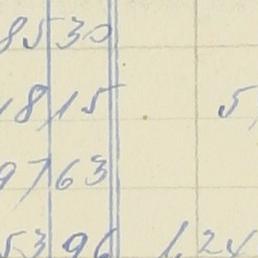 8530
1815 5
9763
5396 1,24